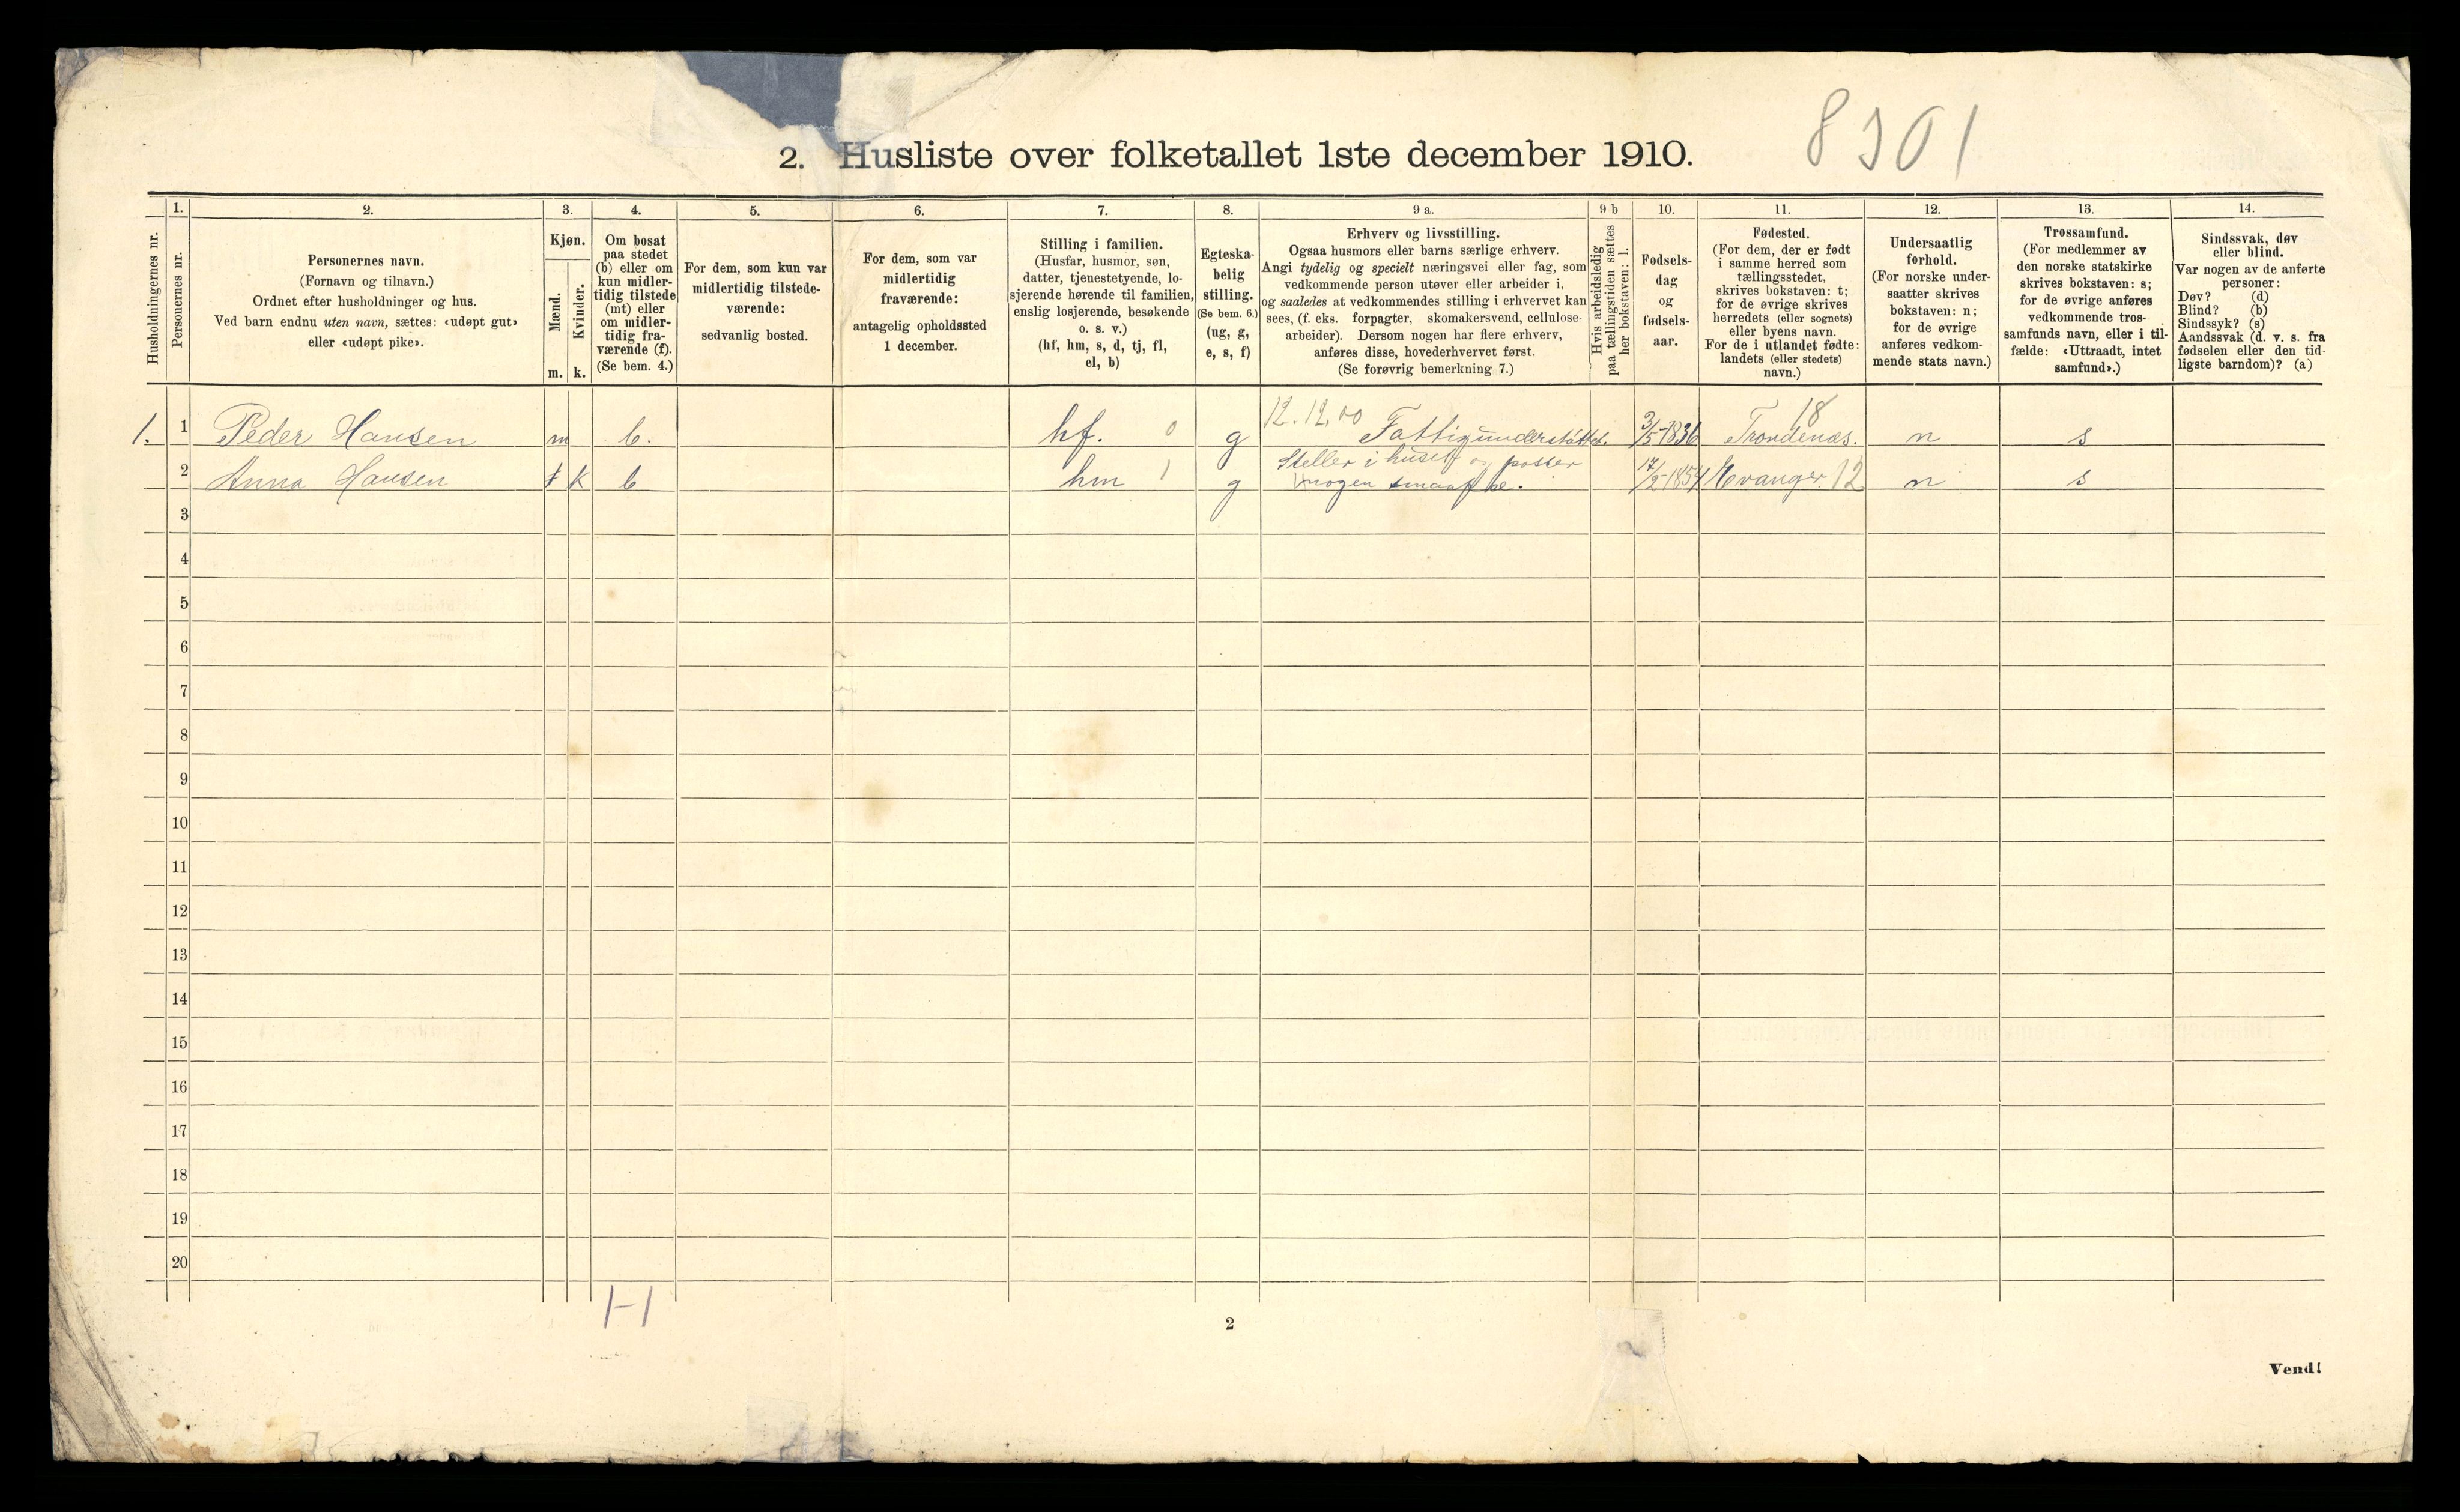 8301
2. Husliste over folketallet 1ste december 1910.
Husholdningernes nr.
1.
Personernes nr.
2.
Personernes navn.
(Fornavn og tilnavn.)
Ordnet efter husholdninger og hus.
Ved barn endnu uten navn, sættes: «udøpt gut»
eller «udøpt pike».
3.
Kjøn.
Mænd.
Kvinder.
m. k.
4.
Om bosat
paa stedet
(b) eller om
kun midler-
tidig tilstede
(mt) eller
om midler-
tidig fra-
værende (f).
(Se bem. 4.)
5.
For dem, som kun var
midlertidig tilstede-
værende:
sedvanlig bosted.
6.
For dem, som var
midlertidig
fraværende:
antagelig opholdssted
1 december.
7.
Stilling i familien.
(Husfar, husmor, søn,
datter, tjenestetyende, lo-
sjerende hørende til familien,
enslig losjerende, besøkende
o. s. v.)
(hf, hm, s, d, tj, fl,
el, b)
8.
Egteska-
belig
stilling.
(Se bem. 6.)
(ug, g,
e, s, f)
9 a.
Erhverv og livsstilling.
Ogsaa husmors eller barns særlige erhverv.
Angi tydelig og specielt næringsvei eller fag, som
vedkommende person utøver eller arbeider i,
og saaledes at vedkommendes stilling i erhvervet kan
sees, (f. eks. forpagter, skomakersvend, cellulose-
arbeider). Dersom nogen har flere erhverv,
anføres disse, hovederhvervet først.
(Se forøvrig bemerkning 7.)
9 b
Hvis arbeidsledig
paa tællingstiden sættes
her bokstaven: l.
10.
Fødsels-
dag
og
fødsels-
aar.
11.
Fødested.
(For dem, der er født
i samme herred som
tællingsstedet,
skrives bokstaven: t;
for de øvrige skrives
herredets (eller sognets)
eller byens navn.
For de i utlandet fødte:
landets (eller stedets)
navn.)
12.
Undersaatlig
forhold.
(For norske under-
saatter skrives
bokstaven: n;
for de øvrige
anføres vedkom-
mende stats navn.)
13.
Trossamfund.
(For medlemmer av
den norske statskirke
skrives bokstaven: s;
for de øvrige anføres
vedkommende tros-
samfunds navn, eller i til-
fælde: «Uttraadt, intet
samfund».)
14.
Sindssvak, døv
eller blind.
Var nogen av de anførte
personer:
Døv? (d)
Blind? (b)
Sindssyk? (s)
Aandssvak (d. v. s. fra
fødselen eller den tid-
ligste barndom)? (a)
12.12,00 18
1. 1 Peder Hansen m b. hf. 0 g Fattigunderstøttet. 3/5-1836 Trondenæs. n s
Steller i huset og passer
2 Anna Hansen k b hm 1 g nogen smaafæ. 17/2-1854 Evanger. 12 n s
3
4
5
6
7
8
9
10
11
12
13
14
15
16
17
18
19
20
1-1
2
Vend!